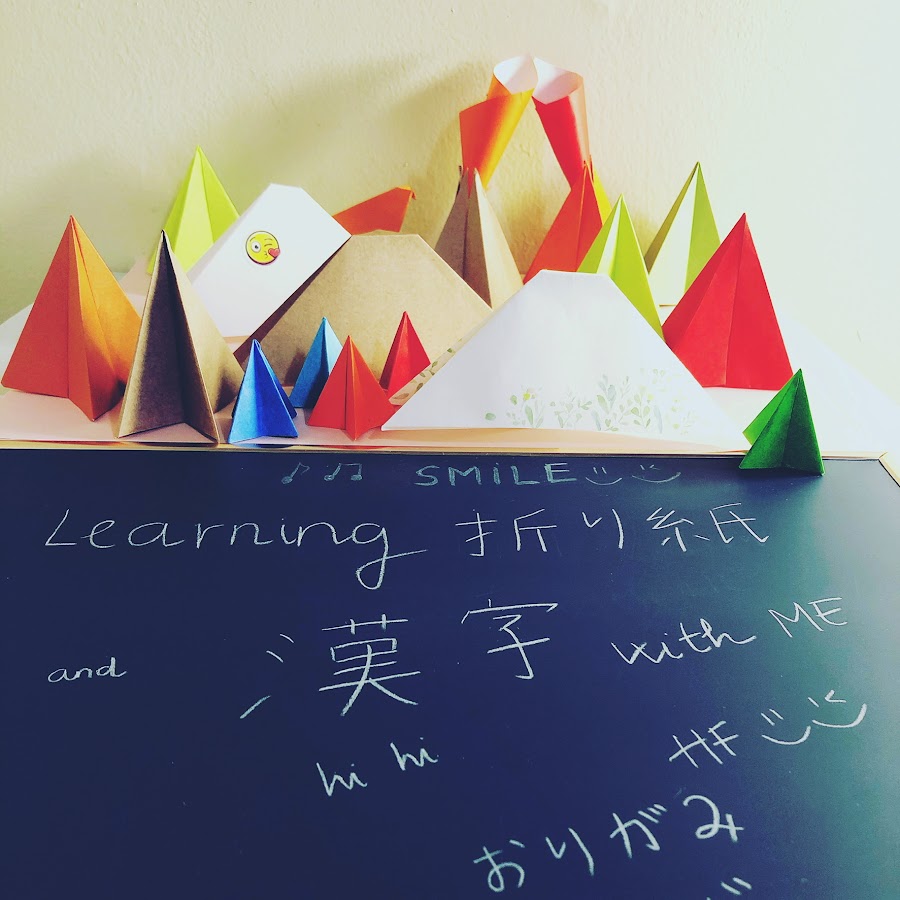 ♪ ♫ ♫ SMiLE
Learning 折り紙
and 漢字 with ME
hi hi HF
おりがみ